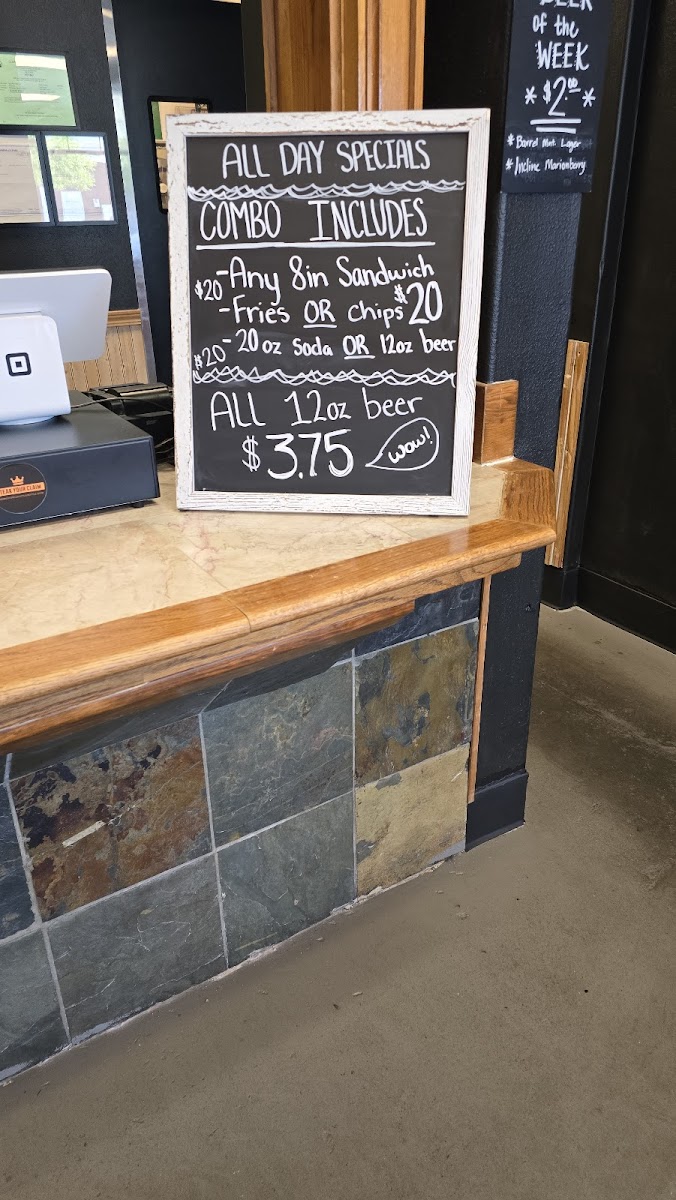 ALL DAY SPECIALS
COMBO INCLUDES
$20 - Any 8in Sandwich
- Fries OR chips $20
$20 - 20oz Soda OR 12oz beer
ALL 12oz beer
$3.75 wow!
BEER
of the
WEEK
* $2.00 *
* Barrel Mnt Lager
* Incline Marionberry